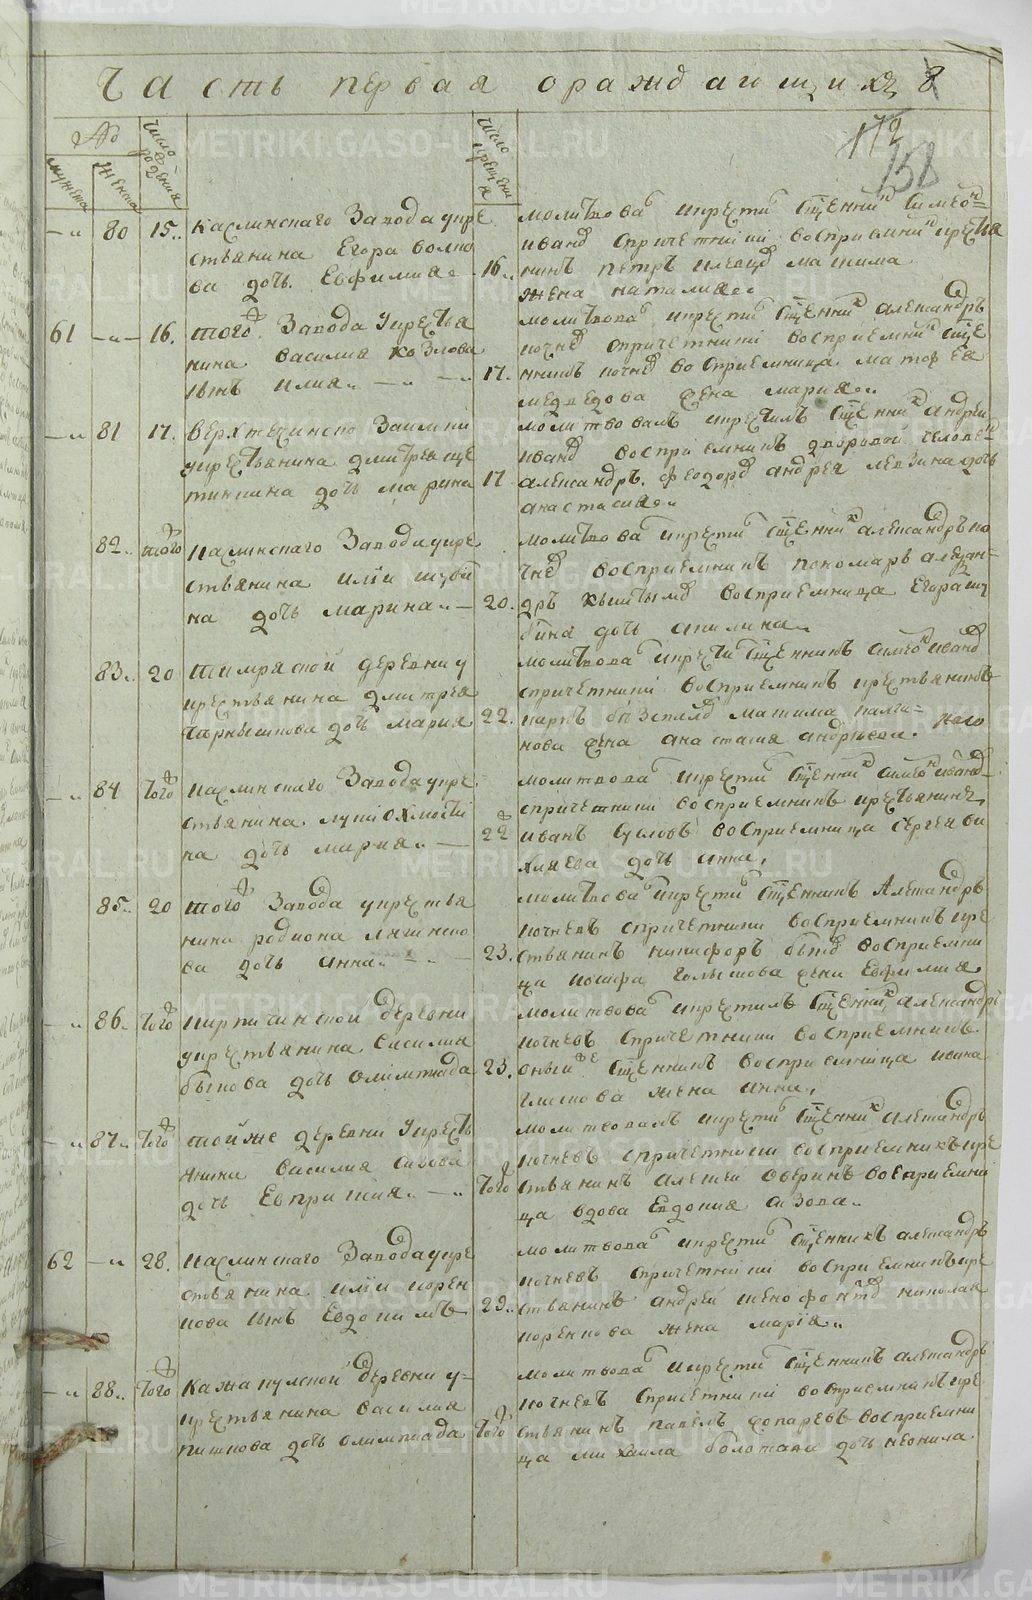 Часть первая ораждающихъ
172
138
№
число рождения
число крещени я
мужеска
женска
80 15. каслинскаго Завода укре
стьянина Егора волко
ва дочь Евфимия
16.
молитвова и крести сщенникъ Симеонъ
ивановъ спричетники восприемникъ кресть
нинъ петръ максима
жена наталия
61 16. того Завода укрестья
нина василия козлова
сынъ илия
17.
молитвова и крести сщенникъ александръ
спричетники восприемникъ сще
нникъ восприемница матфея
медведева жена мария
81 17. верхтечинско Заимки
укрестьянина дмитрея ще
тинкина дочь марина
17
молитвовалъ и крестилъ сщенникъ андрей
ивановъ восприемникъ дворовой человекъ
александръ феодоровъ андрея левзина дочь
анастасия
82. того каслинскаго Завода укре
стьянина илии шуби
на дочь марина
20.
молитвова и крести сщенникъ александръ по
чневъ восприемникъ пономарь алексан=
дръ восприемница Егора шу
бина дочь акилина
83. 20 тимряской деревни у
крестьянина дмитрея
Чернышкова дочь мария
22.
молитвова и крести сщенникъ симеонъ ивановъ
спричетники восприемникъ крестьянинъ
карпъ максима калги=
нова жена анастасия андреева.
84 того каслинскаго Завода укре
стьянина луки охмотки
на дочь мария
22
молитвова и крести сщенникъ симеонъ ивановъ
спричетники восприемникъ крестьянинъ
иванъ Сусловъ восприемница сергея ви
хляева дочь анна
85. 20 того Завода укрестья
нина родиона ляшенко
ва дочь анна
23.
молитвова и крести сщенникъ Александръ
почневъ спричетники восприемникъ кре
стьянинъ никифоръ восприемни
ца иосифа Голышова жена Евфимия
86. того кирпичинской деревни
укрестьянина василия
быкова дочь олимпиада
23.
молитвова и крестилъ сщенникъ александръ
почневъ спричетники восприемникъ
оный же сщенникъ восприемница ивана
глазкова жена анна
87. того тойже деревни Укресть
янина василия сизова
дочь Евпраксия
того
молитвовалъ и крести сщенникъ александръ
почневъ спричетники восприемникъ кре
стьянинъ алексей оверинъ восприемни
ца вдова Евдокия сизова
62 28. каслинскаго Завода укре
стьянина илии корен
кова сынъ Евдокимъ
29.
молитвова и крести сщенникъ александръ
почневъ спричетники восприемникъ кре
стьянинъ андрей ксенофонтовъ николая
коренкова жена мария
88. того Кажакулской деревни у=
крестьянина василия
пишкова дочь олимпиада
того
молитвова и крести сщенникъ александръ
почневъ спричетники восприемникъ кре
стьянинъ павелъ восприемни
ца михаила болотова дочь неонила
METRIKI.GASO-URAL.RU